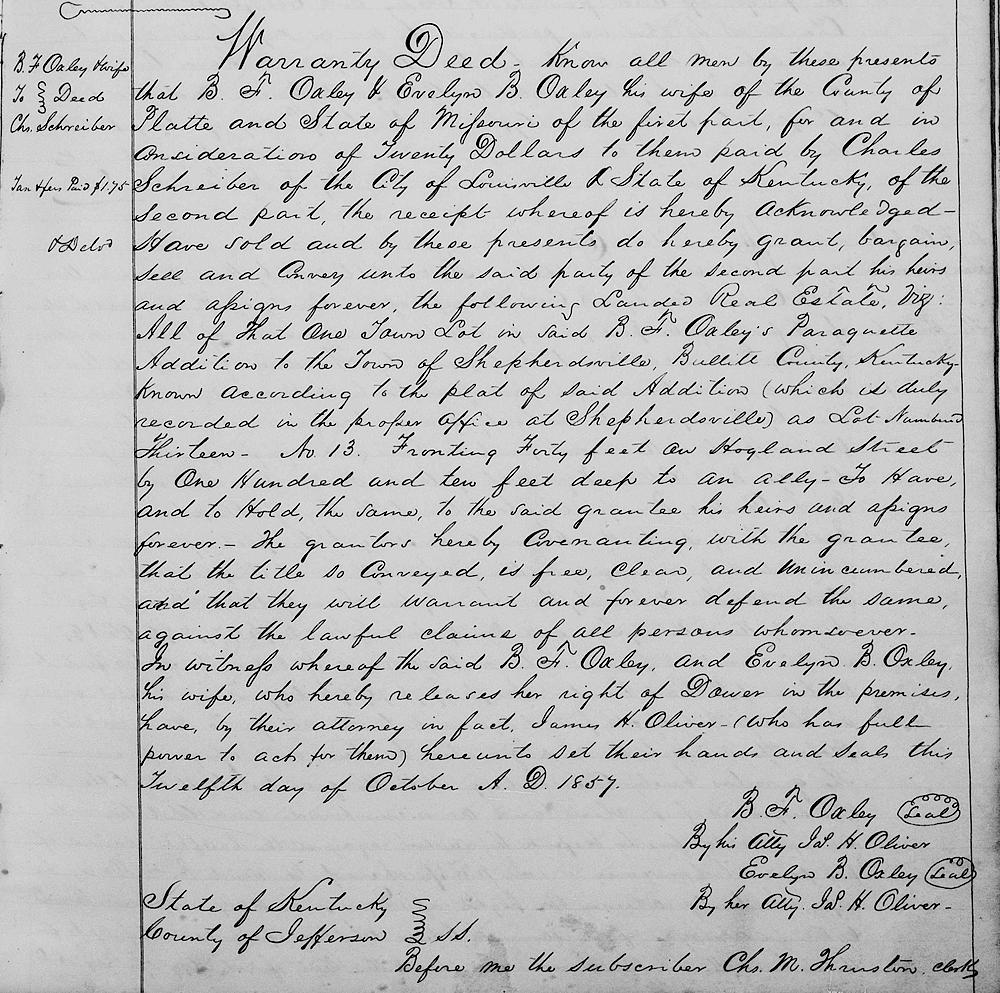 B. F. Oxley & wife
To } Deed
Chs. Schreiber
Tax & fees Paid $1.75
& Delvd
Warranty Deed - Know all men by these presents
that B. F. Oxley & Evelyn B. Oxley his wife of the County of
Platte and State of Missouri of the first part, for and in
Consideration of Twenty Dollars to them paid by Charles
Schreiber of the City of Louisville & State of Kentucky, of the
second part, the receipt whereof is hereby acknowledged -
Have sold and by these presents do hereby grant, bargain,
sell and Convey unto the said party of the second part his heirs
and assigns forever, the following Landed Real Estate, Viz:
All of That One Town Lot in said B. F. Oxley's Paraquette
Addition to the Town of Shepherdsville, Bullitt County, Kentucky-
Known according to the plat of said Addition (which is duly
recorded in the proper office at Shepherdsville) as Lot Numbered
Thirteen - No. 13. Fronting Forty feet on Hogland Street
by One Hundred and ten feet deep to an ally - To Have,
and to Hold, the same, to the said grantee his heirs and assigns
forever. - The grantors hereby Covenanting, with the grantee,
that the title so Conveyed, is free, Clear, and unincumbered,
and that they will warrant and forever defend the same,
against the lawful claims of all persons whomsoever -
In witness whereof the said B. F. Oxley, and Evelyn B. Oxley,
his wife, who hereby releases her right of Dower in the premises,
have, by their attorney in fact, James H. Oliver - (who has full
power to act for them) hereunto set their hands and seals this
Twelfth day of October A. D. 1857.
B. F. Oxley (Seal)
By his Atty Js. H. Oliver
Evelyn B. Oxley (Seal)
By her Atty. Js. H. Oliver -
State of Kentucky
County of Jefferson } SS.
Before me the subscriber Chs. M. Thruston, clerk